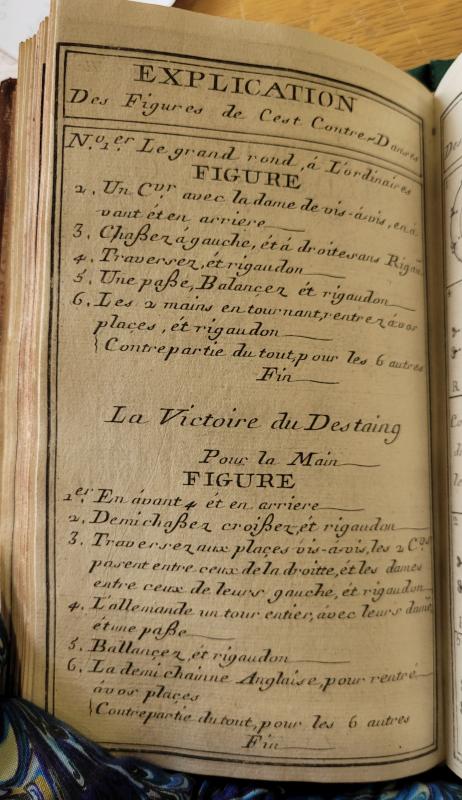 EXPLICATION
Des Figures de Cest Contre-Danses
N.o 1.er Le grand rond, á L'ordinaires
FIGURE
2. Un C.vr avec la dame de vis-á-vis, en á
vant ét en arriere
3. Chaßez á gauche, ét á droite sans Rigau
4. Traversez, ét rigaudon
5. Une paße, Balançez ét rigaudon
6. Les 2 mains en tournant, rentrez á vos
places, ét rigaudon
Contrepartie du tout, pour les 6 autres
Fin
La Victoire du Destaing
Pour la Main
FIGURE
1.er En ávant 4 ét en arriere
2. Demi chaßez croißez, ét rigaudon
3. Traversez aux places vis-á-vis, les 2 C.rs
pasent entre ceux de la droitte, ét les dames
entre ceux de leurs gauche, ét rigaudon
4. L'allemande un tour entier, ávec leurs dame,
ét une paße
5. Ballançez, ét rigaudon
6. La demi chainne Anglaise, pour rentré
á vos places
Contrepartie du tout, pour les 6 autres
Fin